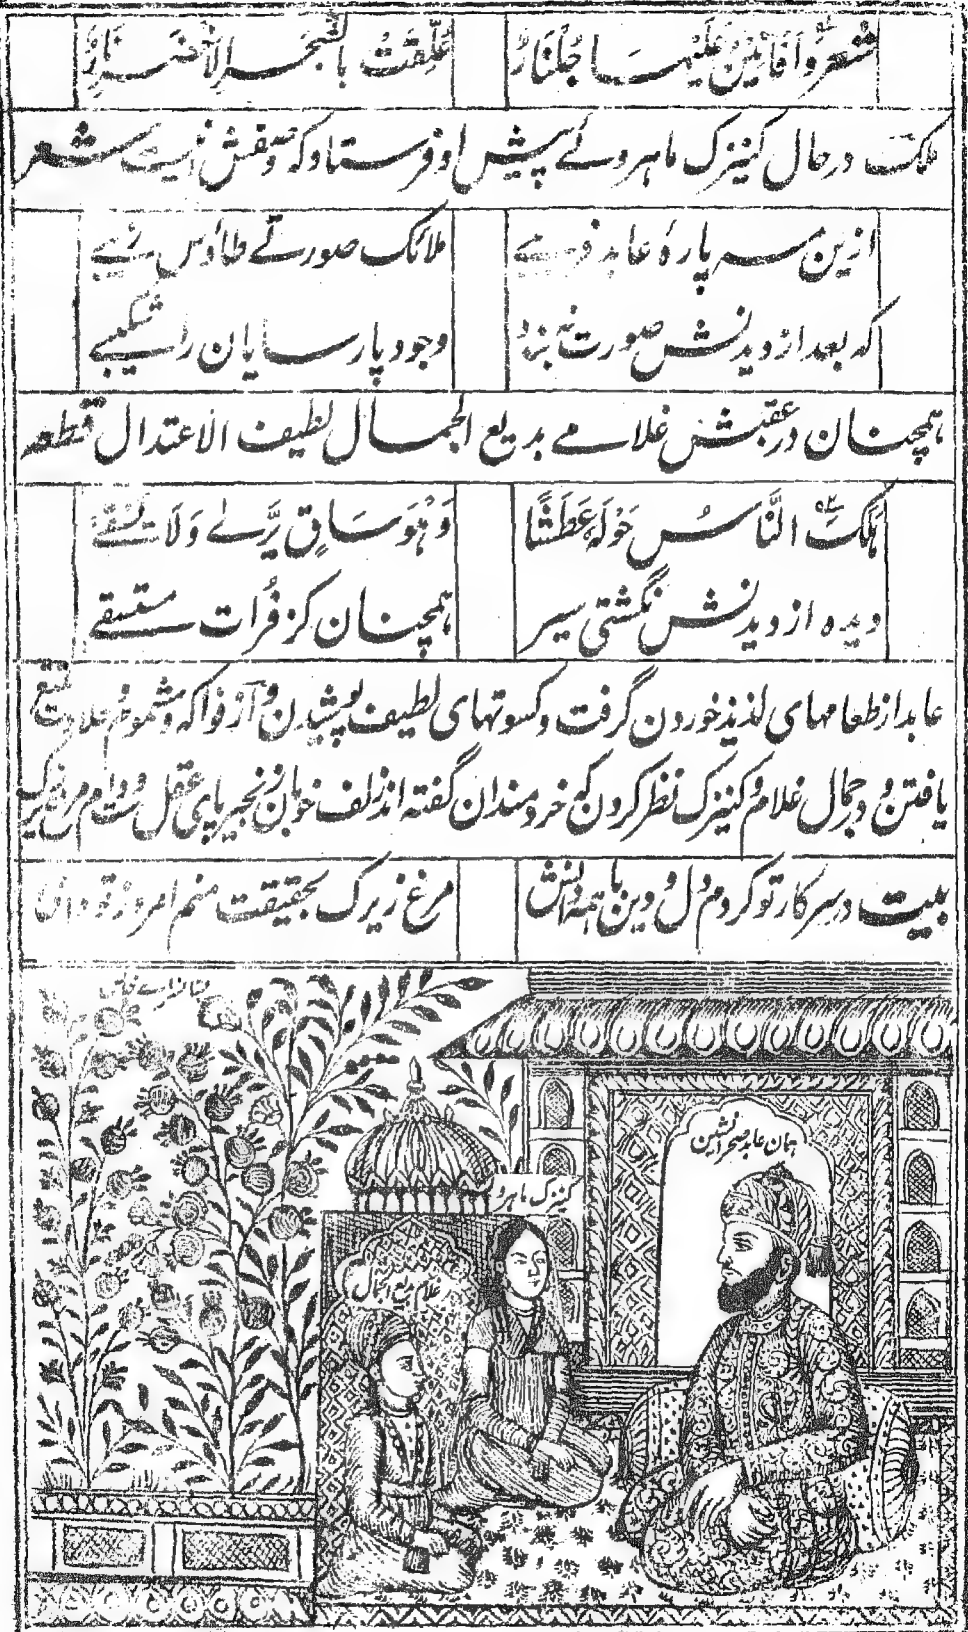 شعر وَاَفَانِیْنُ عَلَیْهَا جُلَّنَارُ عُلِّقَتْ بِالشَّجَرِ الْاَخْضَرِ نَارُ
ملک در حال کنیزک ماهروئے پیش او فرستاد که وصفش اینست شعر
ازین مه پارهٔ عابد فریبے ملائک صورتے طاؤس زیبے
که بعد از دیدنش صورت نه بندد وجود پارسایان را شکیبے
همچنان در عقبش غلامے بدیع الجمال لطیف الاعتدال قطعه
هَلَکَ النَّاسُ حَوْلَهٗ عَطَشًا وَهُوَ سَاقٍ یَّرٰے وَلَا یَسْقِے
دیده از دیدنش نگشتی سیر همچنان کز فُرات مستسقے
عابد از طعامهای لذیذ خوردن گرفت و کسوتهای لطیف پوشیدن و از فواکه و مشموم و حلاوت تمتع
یافتن و در جمال غلام و کنیزک نظر کردن که خردمندان گفته اند زلف خوبان زنجیر پای عقل ست و دام مرغ زیرک
بیت در سر کار تو کردم دل و دین با همه دانش مرغ زیرک بحقیقت منم امروز تو دامی
همان عابد صحرا نشین
کنیزک ماهرو
غلام بدیع الجمال